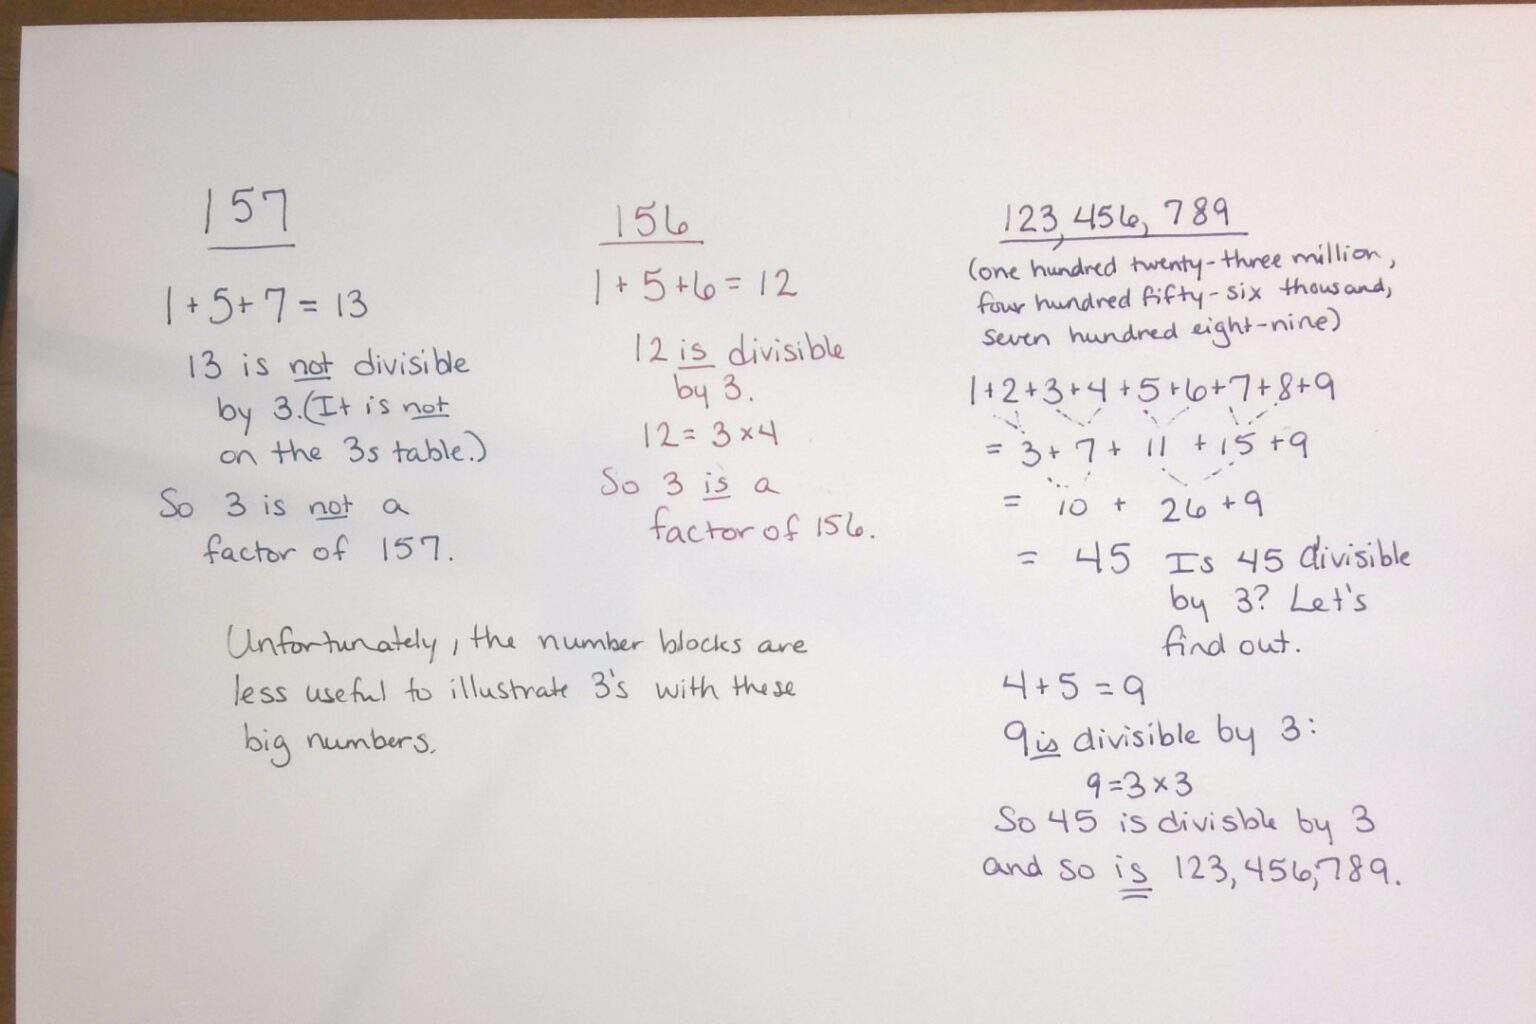 157
1+5+7=13
13 is not divisible
by 3.(It is not
on the 3s table.)
So 3 is not a
factor of 157.
156
1+5+6=12
12 is divisible
by 3.
12=3×4
So 3 is a
factor of 156.
Unfortunately, the number blocks are
less useful to illustrate 3's with these
big numbers.
123,456,789
(one hundred twenty-three million,
four hundred fifty-six thousand,
seven hundred eight-nine)
1+2+3+4+5+6+7+8+9
= 3+7+11+15+9
= 10+26+9
= 45 Is 45 divisible
by 3? Let's
find out.
4+5=9
9 is divisible by 3:
9=3×3
So 45 is divisble by 3
and so is 123,456,789.